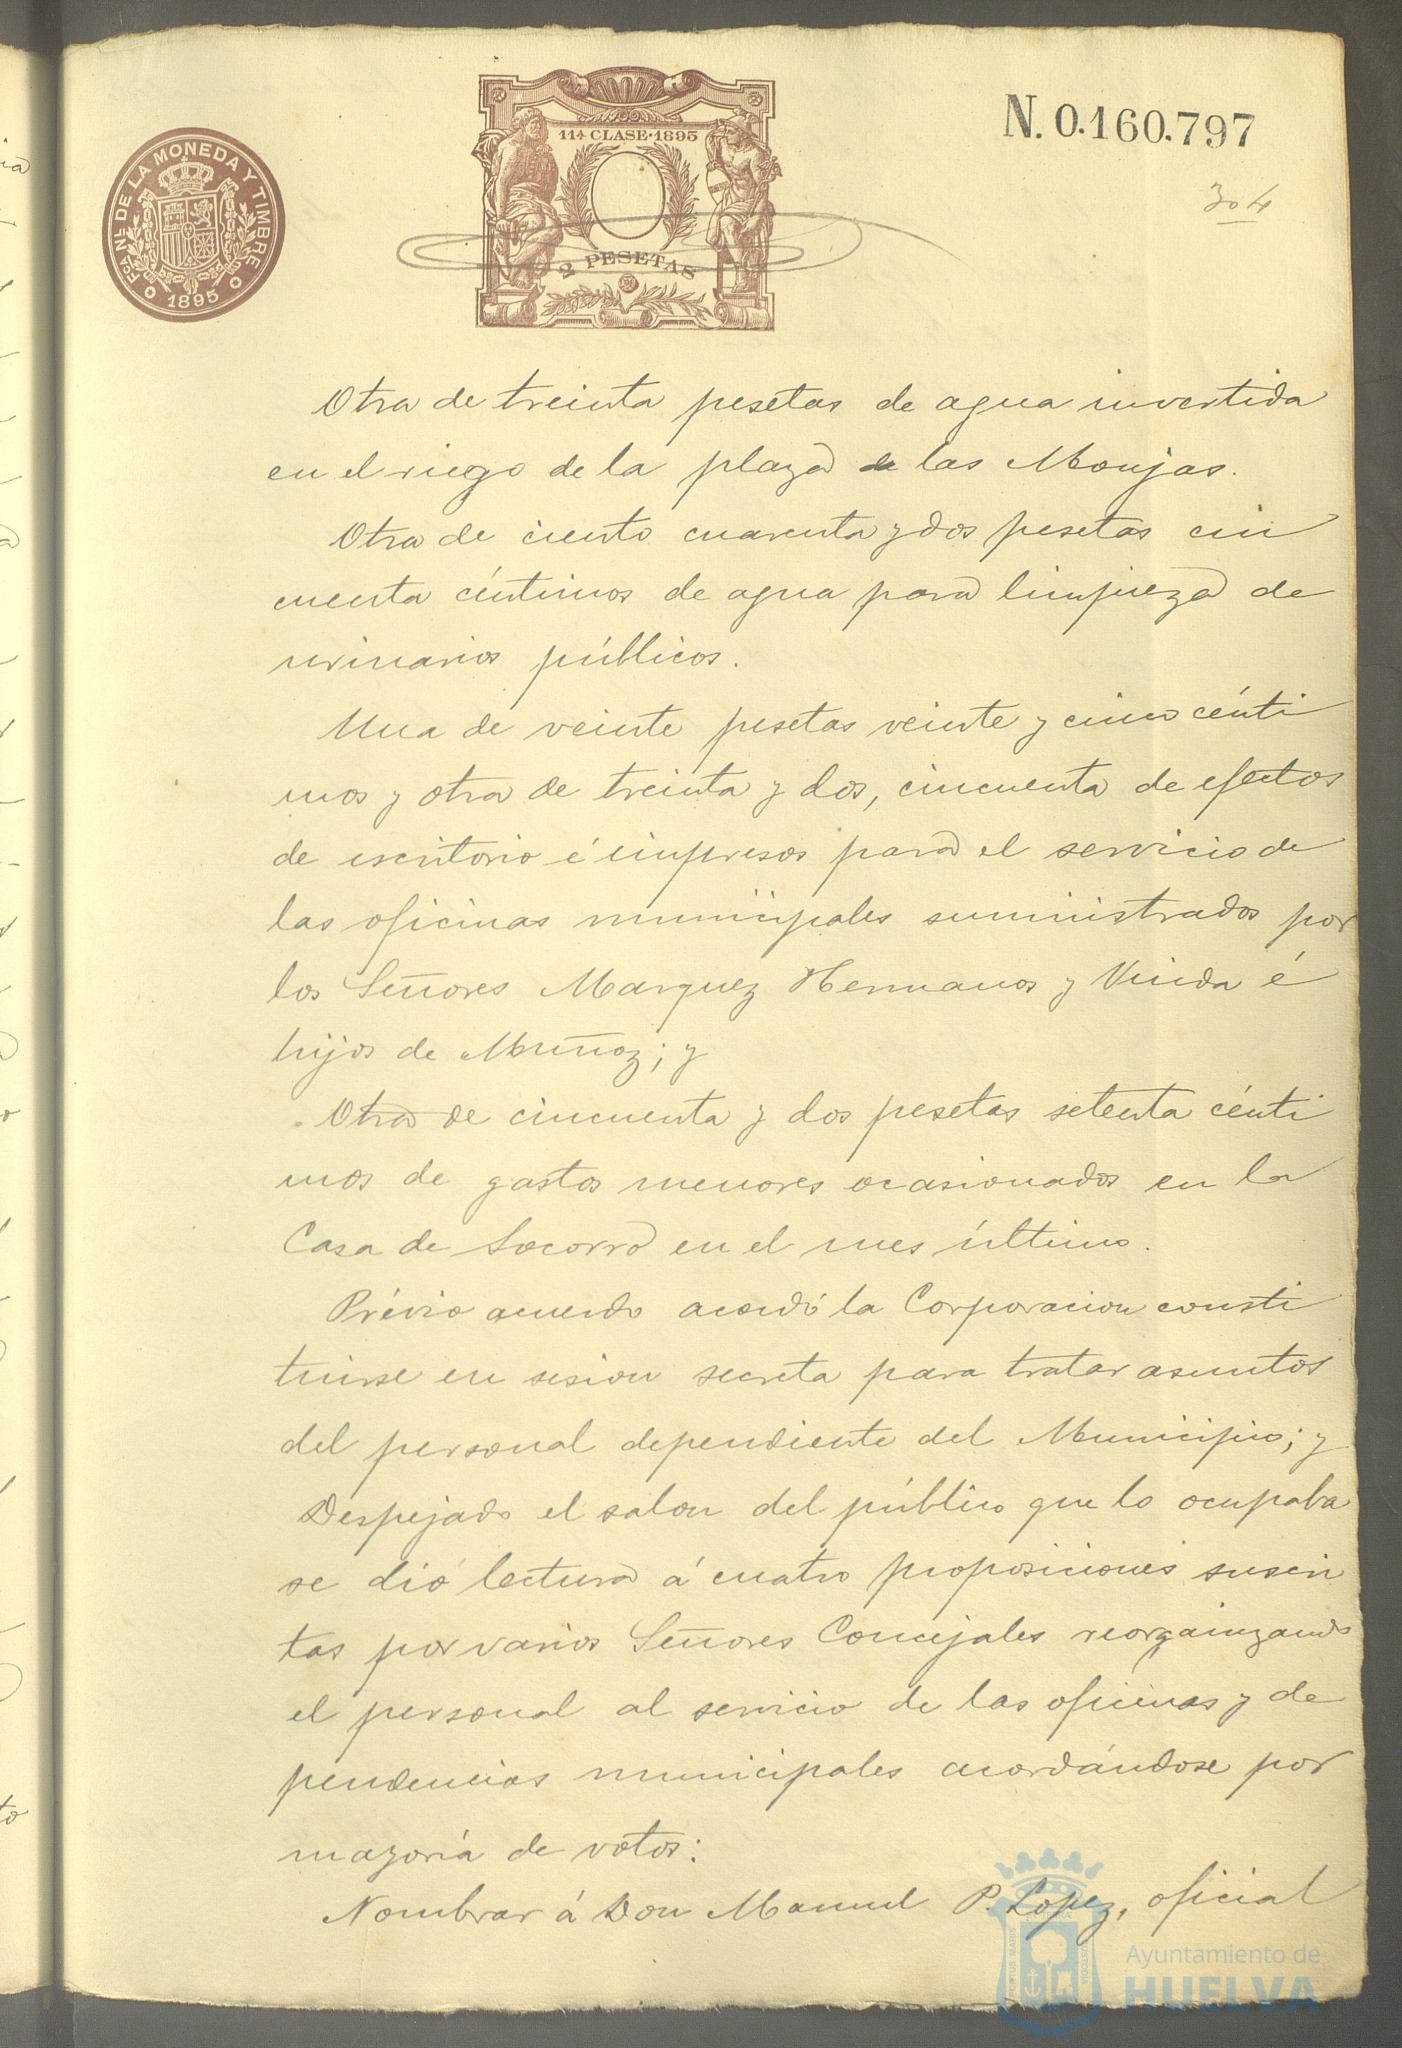 FCA NL DE LA MONEDA Y TIMBRE
1895
11ª CLASE·1895
2 PESETAS
N. 0.160.797
304
Otra de treinta pesetas de agua invertida
en el riego de la plaza de las Monjas.
Otra de ciento cuarenta y dos pesetas cin
cuenta céntimos de agua para limpieza de
urinarios públicos.
Una de veinte pesetas veinte y cinco cénti
mos y otra de treinta y dos, cincuenta de efectos
de escritorio é impresos para el servicio de
las oficinas municipales suministrados por
los Señores Marquez Hermanos y Viuda é
hijos de Muñoz; y
Otra de cincuenta y dos pesetas setenta cénti
mos de gastos menores ocasionados en la
Casa de Socorro en el mes último.
Prévio acuerdo acordó la Corporacion consti
tuirse en sesion secreta para tratar asuntos
del personal dependiente del Municipio; y
Despejado el salon del público que lo ocupaba
se dió lectura á cuatro proposiciones suscri
tas por varios Señores Concejales reorganizando
el personal al servicio de las oficinas y de
pendencias municipales acordándose por
mayoría de votos:
Nombrar á Don Manuel P. Lopez, oficial
Ayuntamiento de
HUELVA